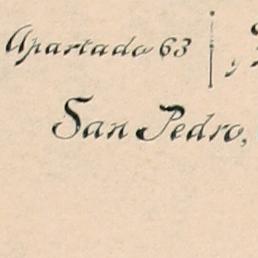 Apartado 63
y
San Pedro,